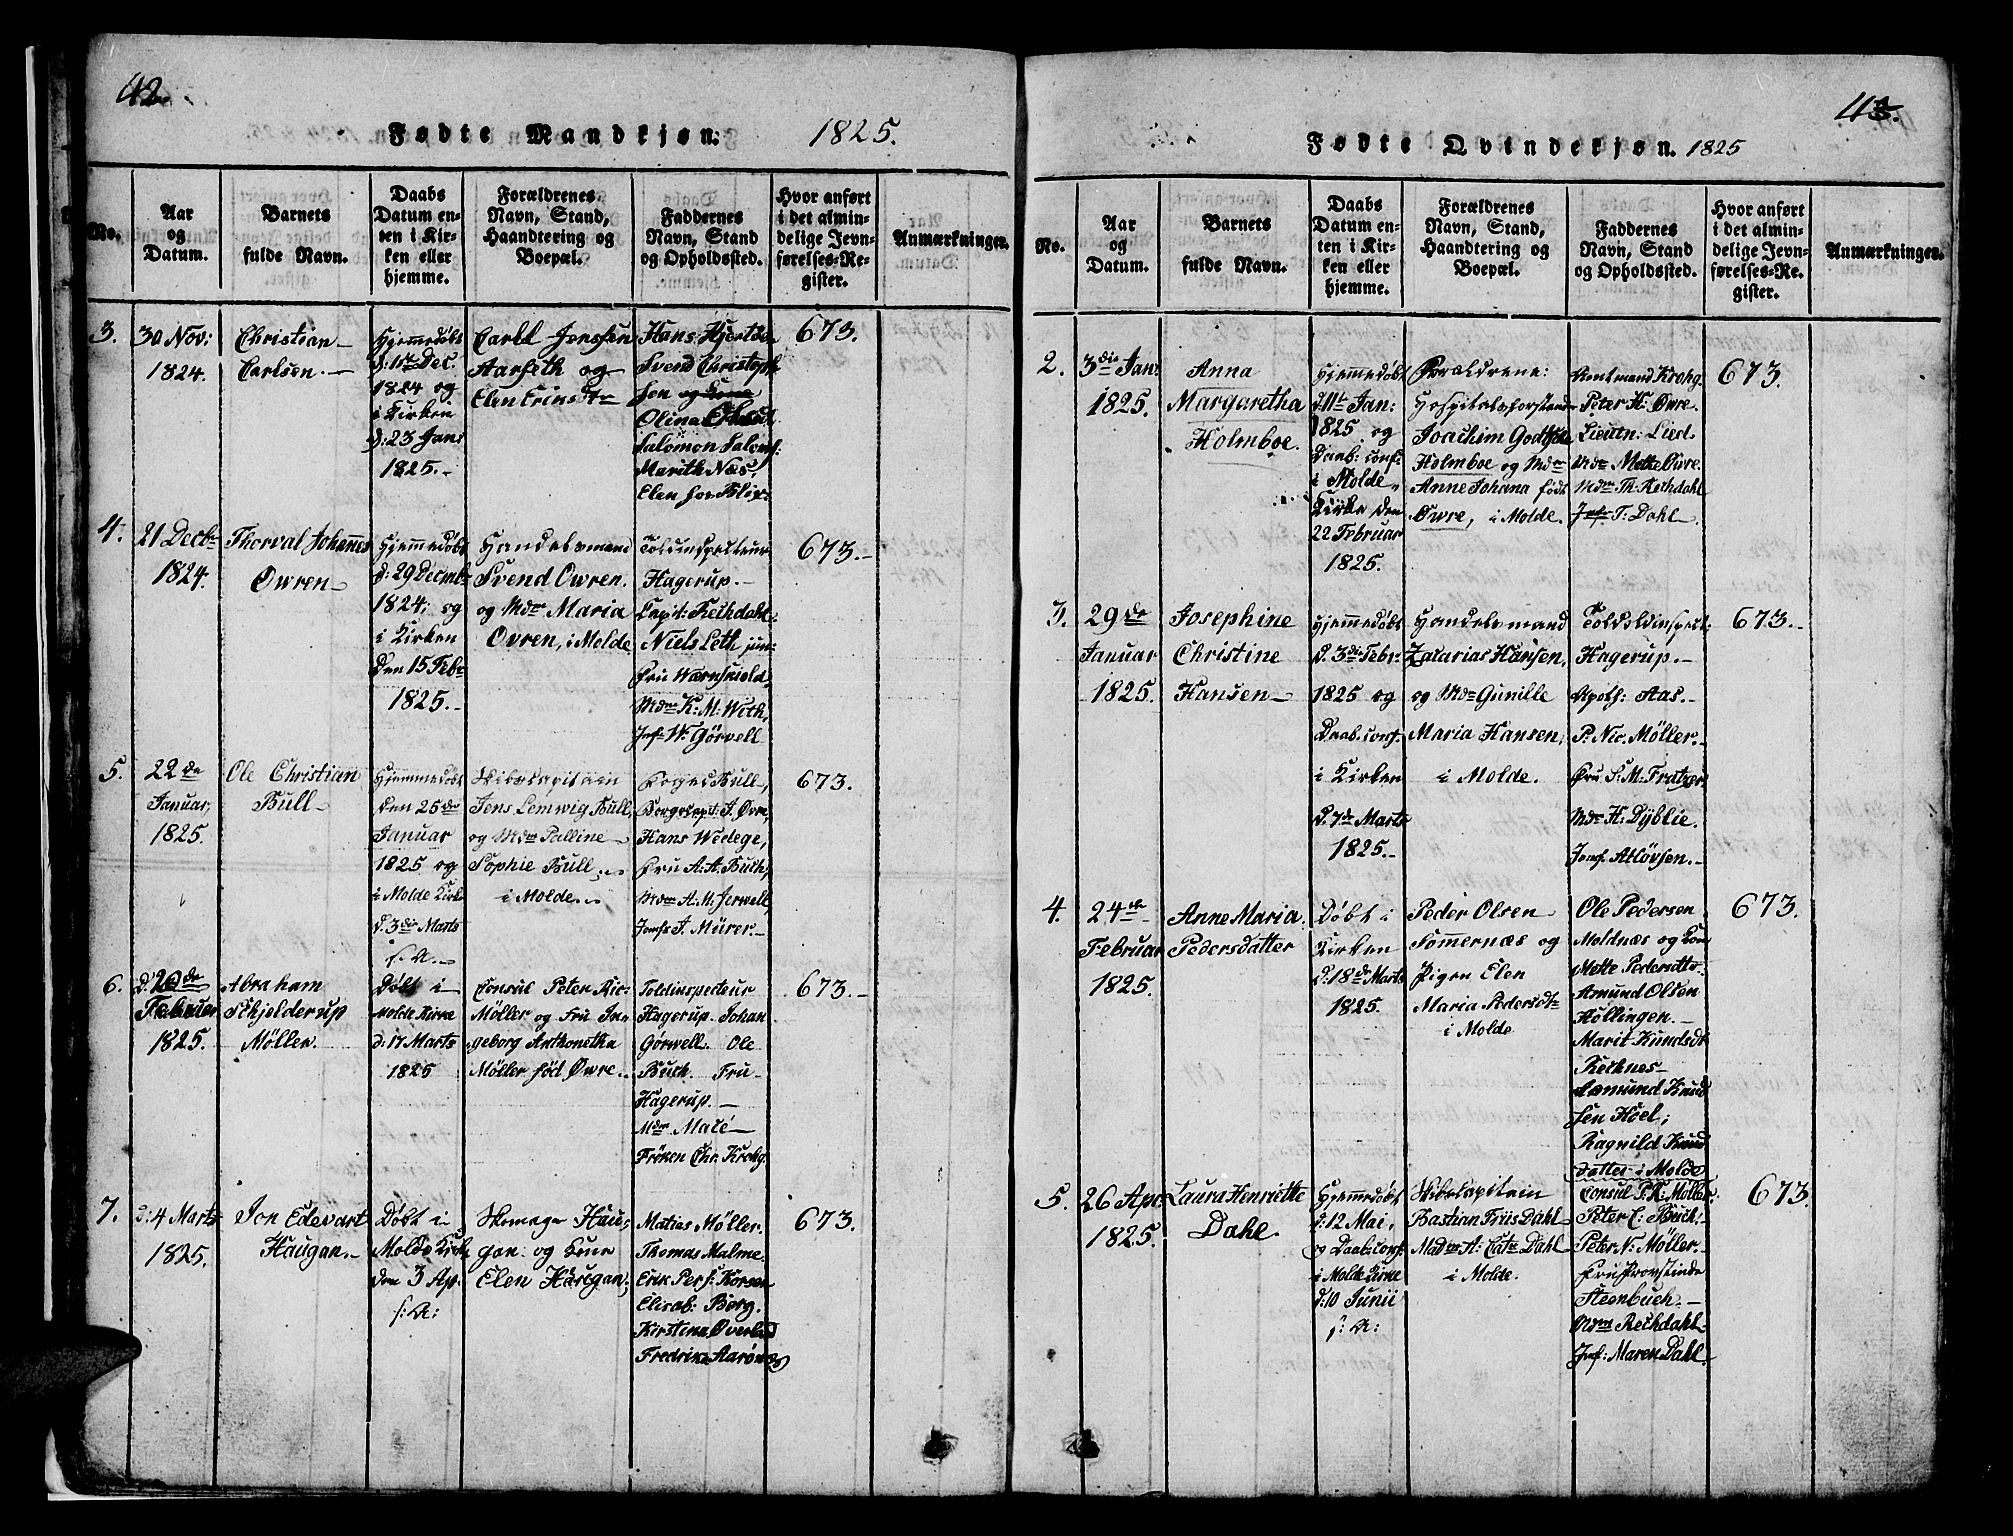 42
Fødte Mandkjøn: 1825.
No.
Aar og Datum.
Barnets fulde Navn.
Daabs Datum enten i Kirken eller hjemme.
Forældrenes Navn, Stand, Haandtering og Boepæl.
Faddernes Navn, Stand og Opholdssted.
Hvor anført i det almindelige Jevnførelses-Register.
Anmærkninger.
3.
30 Nov:
1824.
Christian
Carlsen.
Hjemmedøbt
d: 11te Dec.
1824 og
i Kirken
d: 23 Jan:
1825.
Carll Jenssen
Aarseth og
Elen
Hans
Svend Christoph
sen
Olina
Salomon Saloms:
Marith Næs.
Elen
673.
4.
21 Decbr
1824.
Thorval Johannes
Owren
Hjemmedøbt
d: 29 Decmb
1824; og
i Kirken
den 15 Febr
1825.
Handelsmand
Svend Owren.
og Mdm Maria
Ovren, i Molde
Toldinspecteur
Hagerup.
Capt: Rechdahl
Niels Leth jun
Fru Wærnskiold,
Mdm K: M: With,
Jmfr W: Görvell
673.
5.
22de
Januar,
1825.
Ole Christian
Bull
Hjemmedøbt
den 25de
Januar
1825 og
i Molde Kirke
d. 3die Marts
s. A.
Skibscapitain
Jens Lemwig Bull,
og Mdm Palline
Sophie Bull
i Molde.
Foged Bull,
Borgcapt: J. Øvre,
Hans Wedege,
Fru A: A. Buch,
Mdm A. M: Jerwell,
Jomfr J. Mürer.
673.
6.
d. 20de
Februar
1825.
Abraham
Schjelderup
Møller.
Døbt i
Molde Kirke
d: 17 Marts
1825
Consul Peter Nic:
Møller og Fru In
geborg Anthonetha
Møller fød Øwre.
Toldinspecteur
Hagerup. Johan
Gørwell. Ole
Buch. Fru
Hagerup.
Mdm
Frøken Chr. Krohg.
673.
7.
d: 4 Marts
1825.
Jon Edevart
Haugan.
Døbt i
Molde Kirk
den 3 Ap.
s: A:
Skomager Hau
gan og Kone
Elen Haugan,
Matias Møller.
Thomas Malme
Erik Pers: Korsen
Elisab: Borg.
Kirstina
Fredrik
673.
43.
Fødte Qvindekjøn. 1825
No.
Aar og Datum.
Barnets fulde Navn.
Daabs Datum enten i Kirken eller hjemme.
Forældrenes Navn, Stand, Haandtering og Boepæl.
Faddernes Navn, Stand og Opholdssted.
Hvor anført i det almindelige Jevnførelses-Register.
Anmærkninger.
2.
3die Jan:
1825.
Anna
Margaretha
Holmboe.
Hjemmedøbt
d: 11te Jan:
1825 og
Daab: conf.
i Molde
Kirke den
22 Februar
1825.
Forældrene:
Hospitalsforstand
Joachim Godtsche
Holmboe og Mdm
Anne Johana født
Øwre, i Molde.
Amtmand Krohg.
Peter H: Øvre.
Lieutn: Lied.
Mdm Mette Øvre.
Mdm Th: Rechdahl
Jmfr T: Dahl.
673.
3.
29de
Januar
1825.
Josephine
Christine
Hansen
Hjemmedøbt
d. 3die Febr:
1825 og
Daab. conf.
i Kirken
d. 7de Marts
1825.
Handelsmand
Zacarias Hansen,
og Mdm Gunille
Maria Hansen,
i Molde.
Hagerup.
Apoth: Aas.
P. Nic. Møller.
Fru S. M: Fratzer
Mdm H: Dyblie.
Jomf.
673.
4.
24de
Februar
1825.
Anne Maria
Pedersdatter
Døbt i
Kirken
d. 18de Marts
1825.
Peder Olsen
Sømernæs og
Pigen Elen
Maria Pedersdtr
i Molde
Ole Pedersen
Moldnæs og Kon
Mette Pedersdtr
Amund Olsen
Høllingen.
Marit Kundsdt
Reknes
Knud
sen Höel;
Ragnild Knud
datter i Molde
673.
5.
26 Apr
1825.
Laura Henriette
Dahl
Hjemmedøbt
d: 12 Mai,
og Daab: conf:
i Molde Kirke
d: 10 Junii
s: A:
Skibscapitain
Bastian Friis Dahl
Madm A: Catr Dahl
i Molde.
Consul P. N: Møller
Peter C: Buch.
Peter N: Møller.
Fru Provstinde
Steenbuch.
Mdm Rechdahl
Jmf: Maren Dahl.
673.